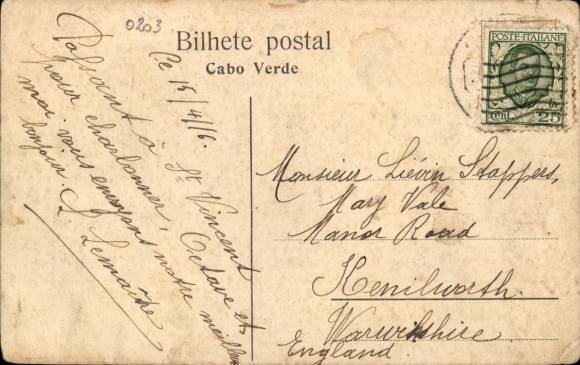 0203
Bilhete postal
Cabo Verde
Ce 15/4/16.
Passant à St Vincent
pour charbonner, Octave et
moi vous envoyons notre meilleur
bonjour.
L. Lemaître
POSTE·ITALIANE
Cent 25
Monsieur Liévin Stappers,
Mary Vale
Manor Road
Kenilworth.
Warwikshire
England.